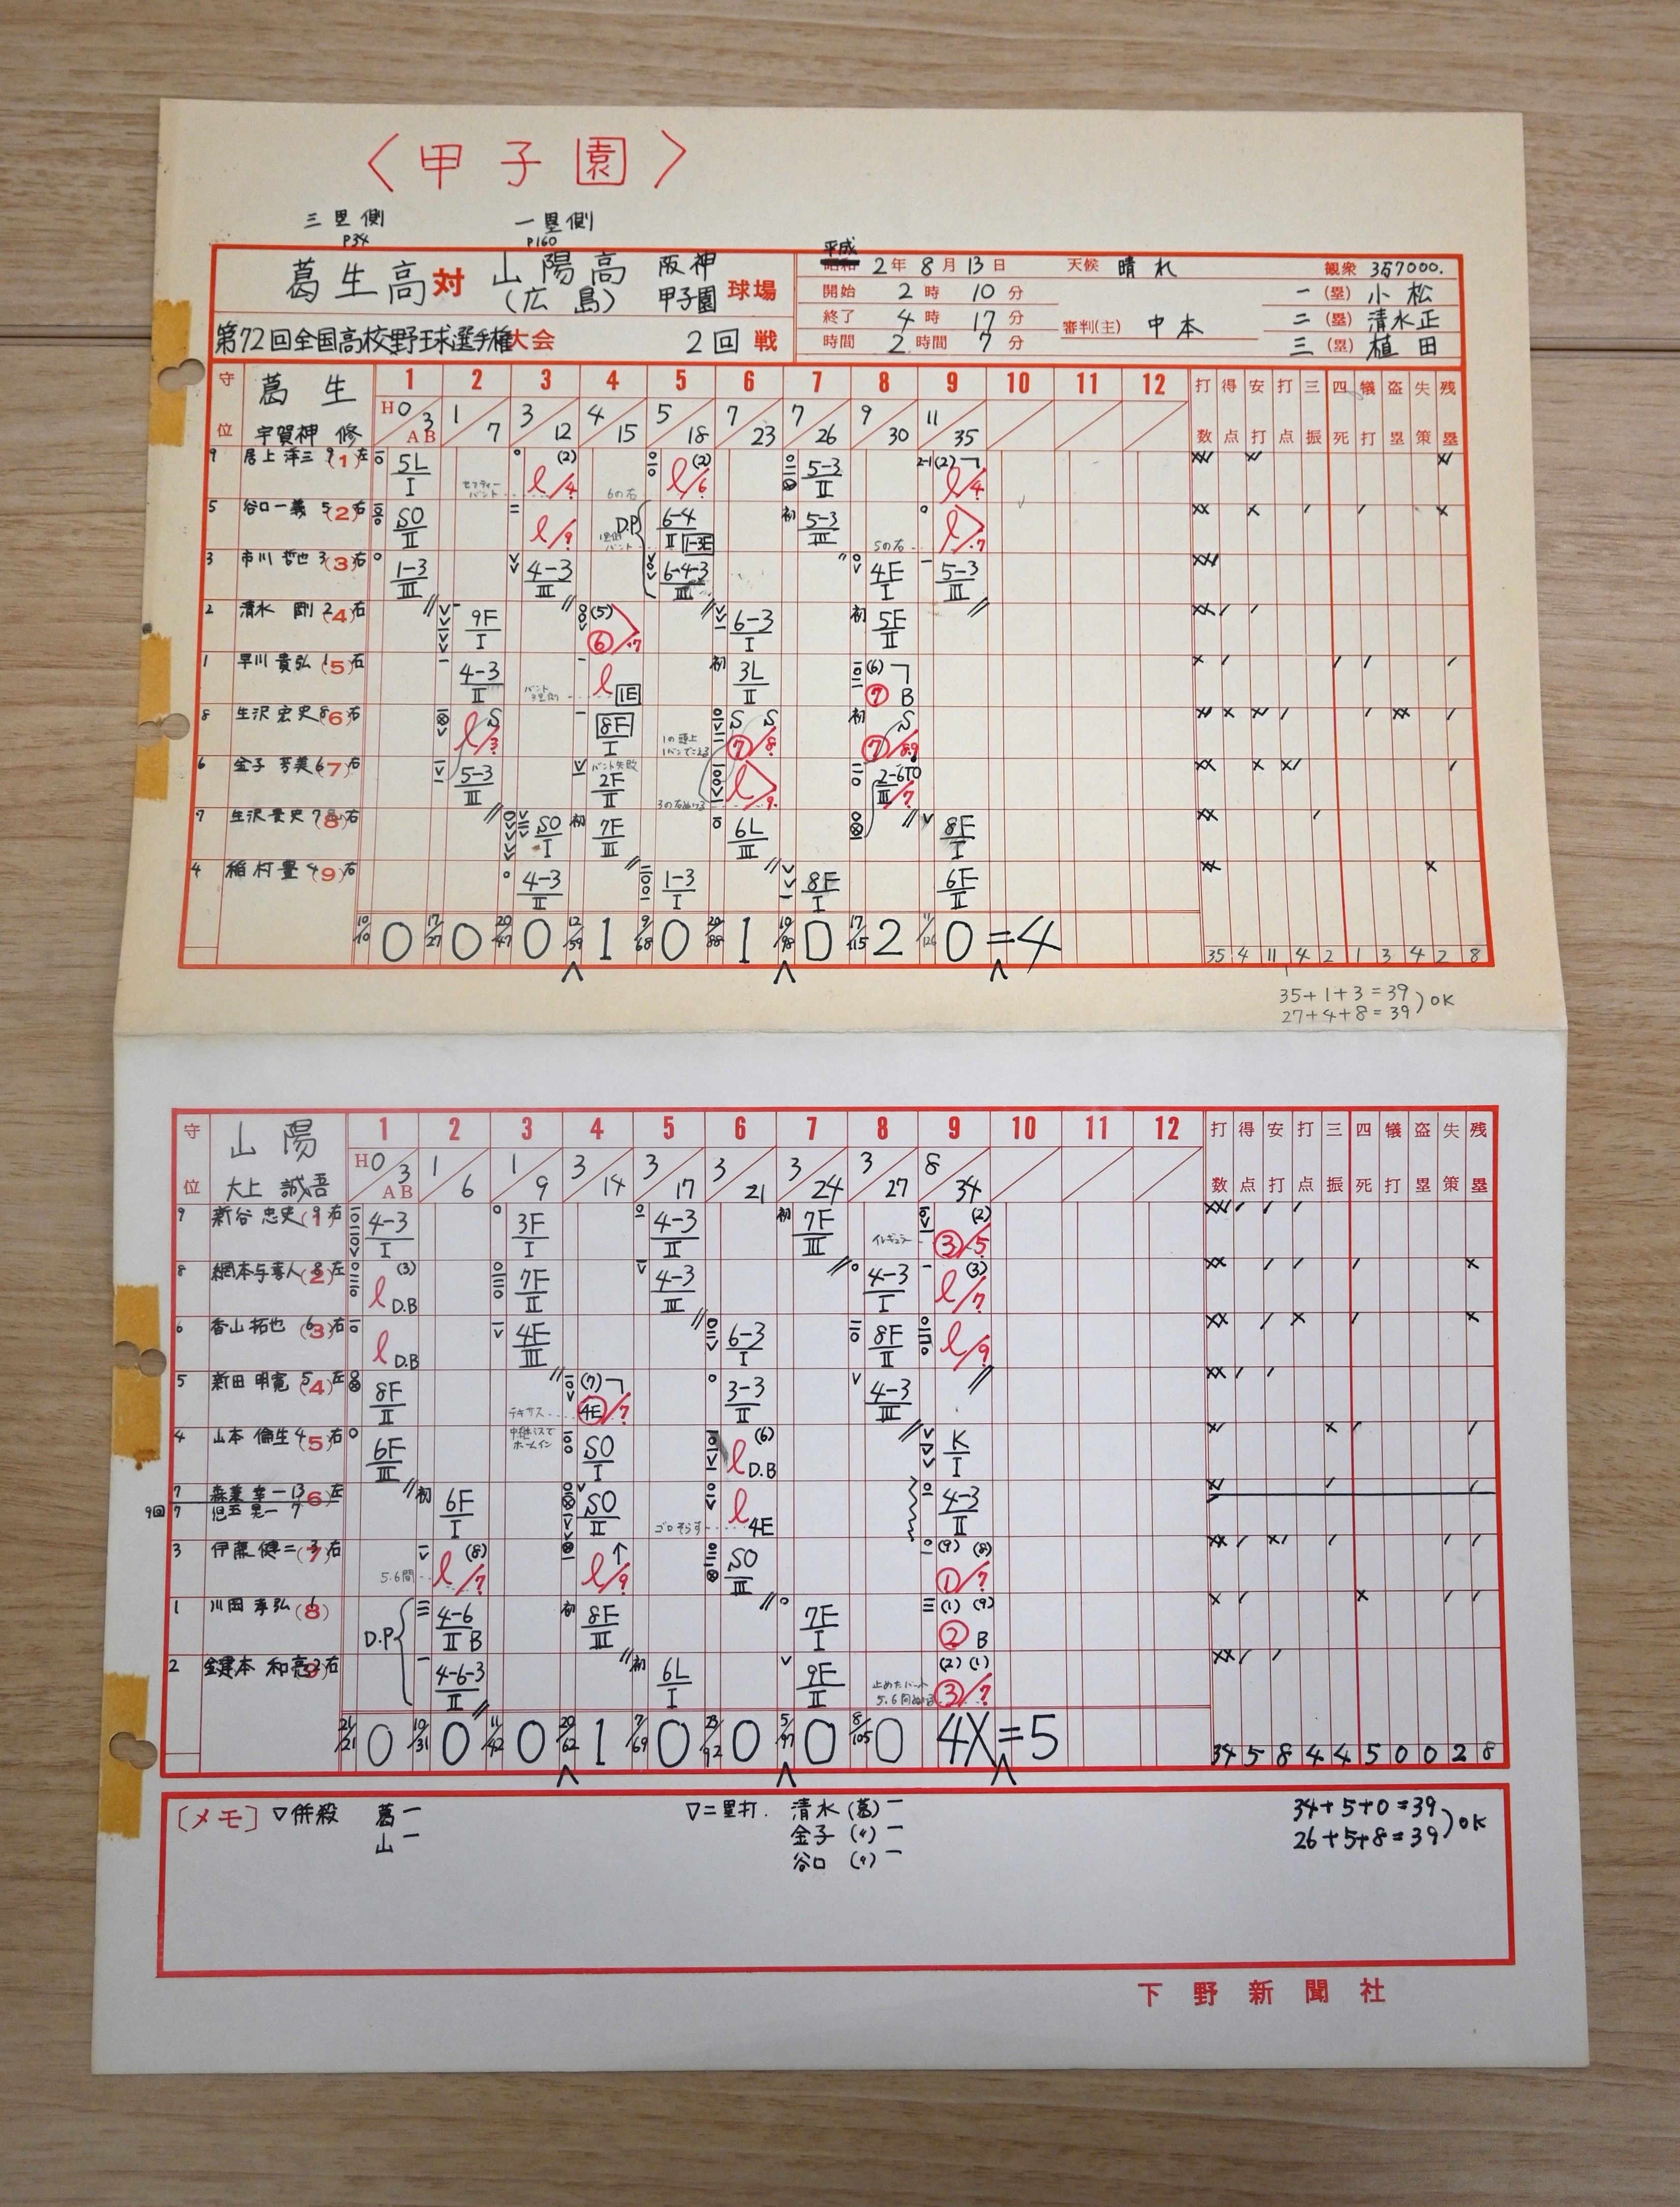 〈甲子園〉
三塁側 一塁側
P34 P160
葛生高 対 山陽高 (広島) 阪神 甲子園 球場
第72回全国高校野球選手権大会 2回戦
平成 2年 8月 13日 天候 晴れ 観衆 357000.
開始 2時 10分 一(塁) 小松
終了 4時 17分 審判(主) 中本 二(塁) 清水正
時間 2時間 7分 三(塁) 植田
守位 葛生 1 2 3 4 5 6 7 8 9 10 11 12 打数 得点 安打 打点 三振 四死 犠打 盗塁 失策 残塁
宇賀神 修 H0/3AB 1/7 3/12 4/15 5/18 7/23 7/26 9/30 11/35
9 居上 洋三 9(1)左 5L I (2) l/4 (2) l/6 5-3 II 2-1(2) l/4
5 谷口一義 5(2)右 SO II l/9 D.P 6-4 II 1-3E 初 5-3 III l 7
3 市川 哲也 3(3)右 1-3 III 4-3 III 6-4-3 III 4F I 5-3 III
2 清水 剛 2(4)右 9F I (5) ⑥ 7 6-3 I 初 5F II
1 早川 貴弘 1(5)右 4-3 II l 1E 初 3L II (6) ⑦ B
8 生沢 宏史 8(6)右 l/3 S 8F I S S ⑦/8 初 S ⑦/8.9
6 金子 芳美 6(7)右 5-3 III バント失敗 2F II l 9 2-6TO III/7
7 生沢 貴史 7(8)右 SO I 初 7F III 6L III 8F I
4 稲村 豊 4(9)右 4-3 III 1-3 I 8F I 6F II
0 0 0 1 0 1 0 2 0 =4 35 4 11 4 2 1 3 4 2 8
35+1+3=39
27+4+8=39 )OK
守位 山陽 1 2 3 4 5 6 7 8 9 10 11 12 打数 得点 安打 打点 三振 四死 犠打 盗塁 失策 残塁
大上 誠吾 H0/3AB 1/6 1/9 3/14 3/17 3/21 3/24 3/27 8/34
9 新谷 忠史(1)右 4-3 I 3F I 4-3 II 初 7F III イレギュラー (2) ③/5
8 網本与喜人(2)左 (3) l D.B 7F II 4-3 III 4-3 I (3) l/7
6 香山 拓也 6(3)右 l D.B 4F III 6-3 I 8F II l/9
5 新田 明寛 5(4)左 8F II テキサス 中継ミスでホームイン (7) 4E/7 3-3 II 4-3 III
4 山本 倫生 4(5)右 6F III SO I (6) l D.B K I
7 森兼 幸一 13(6)左 初 6F I SO II ゴロそらす l 4E 4-3 II
9回 7 児玉 晃一 7
3 伊藤 健二(7)右 5.6間 (8) l/7 l/9 SO III (9) (8) ①/7
1 川岡 孝弘(8) D.P 4-6 II B 初 8F III 7F I (1) (9) ② B
2 鍵本 和亮(9)右 4-6-3 II 初 6L I 9F II 止めたバット (2) (1) ③/7
0 0 0 1 0 0 0 0 4X =5 34 5 8 4 4 5 0 0 2 8
〔メモ〕 ▽併殺 葛一 ▽二塁打. 清水(葛)一 34+5+0=39
山一 金子(〃)一 26+5+8=39 )OK
谷口(〃)一
下野新聞社